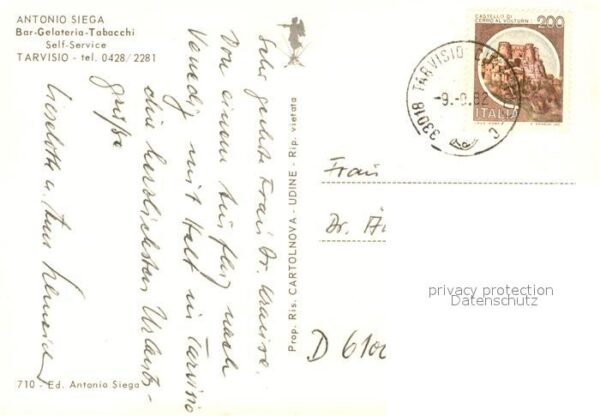 ANTONIO SIEGA
Bar-Gelateria-Tabacchi
Self-Service
TARVISIO - tel. 0428/2281
Sehr geehrte Frau Dr. Krause.
Von einem Ausflug nach
Venedig mit Halt in Tarvisio
die herzlichsten Urlaubs-
grüße
Lieselotte u.
710 - Ed. Antonio Siega
Prop. Ris. CARTOLNOVA - UDINE - Rip. vietata
CASTELLO DI
CERRO AL VOLTURNO
200
ITALIA
33018 TARVISIO
-9.-9.82
C
Frau
Dr.
D 6100
privacy protection
Datenschutz